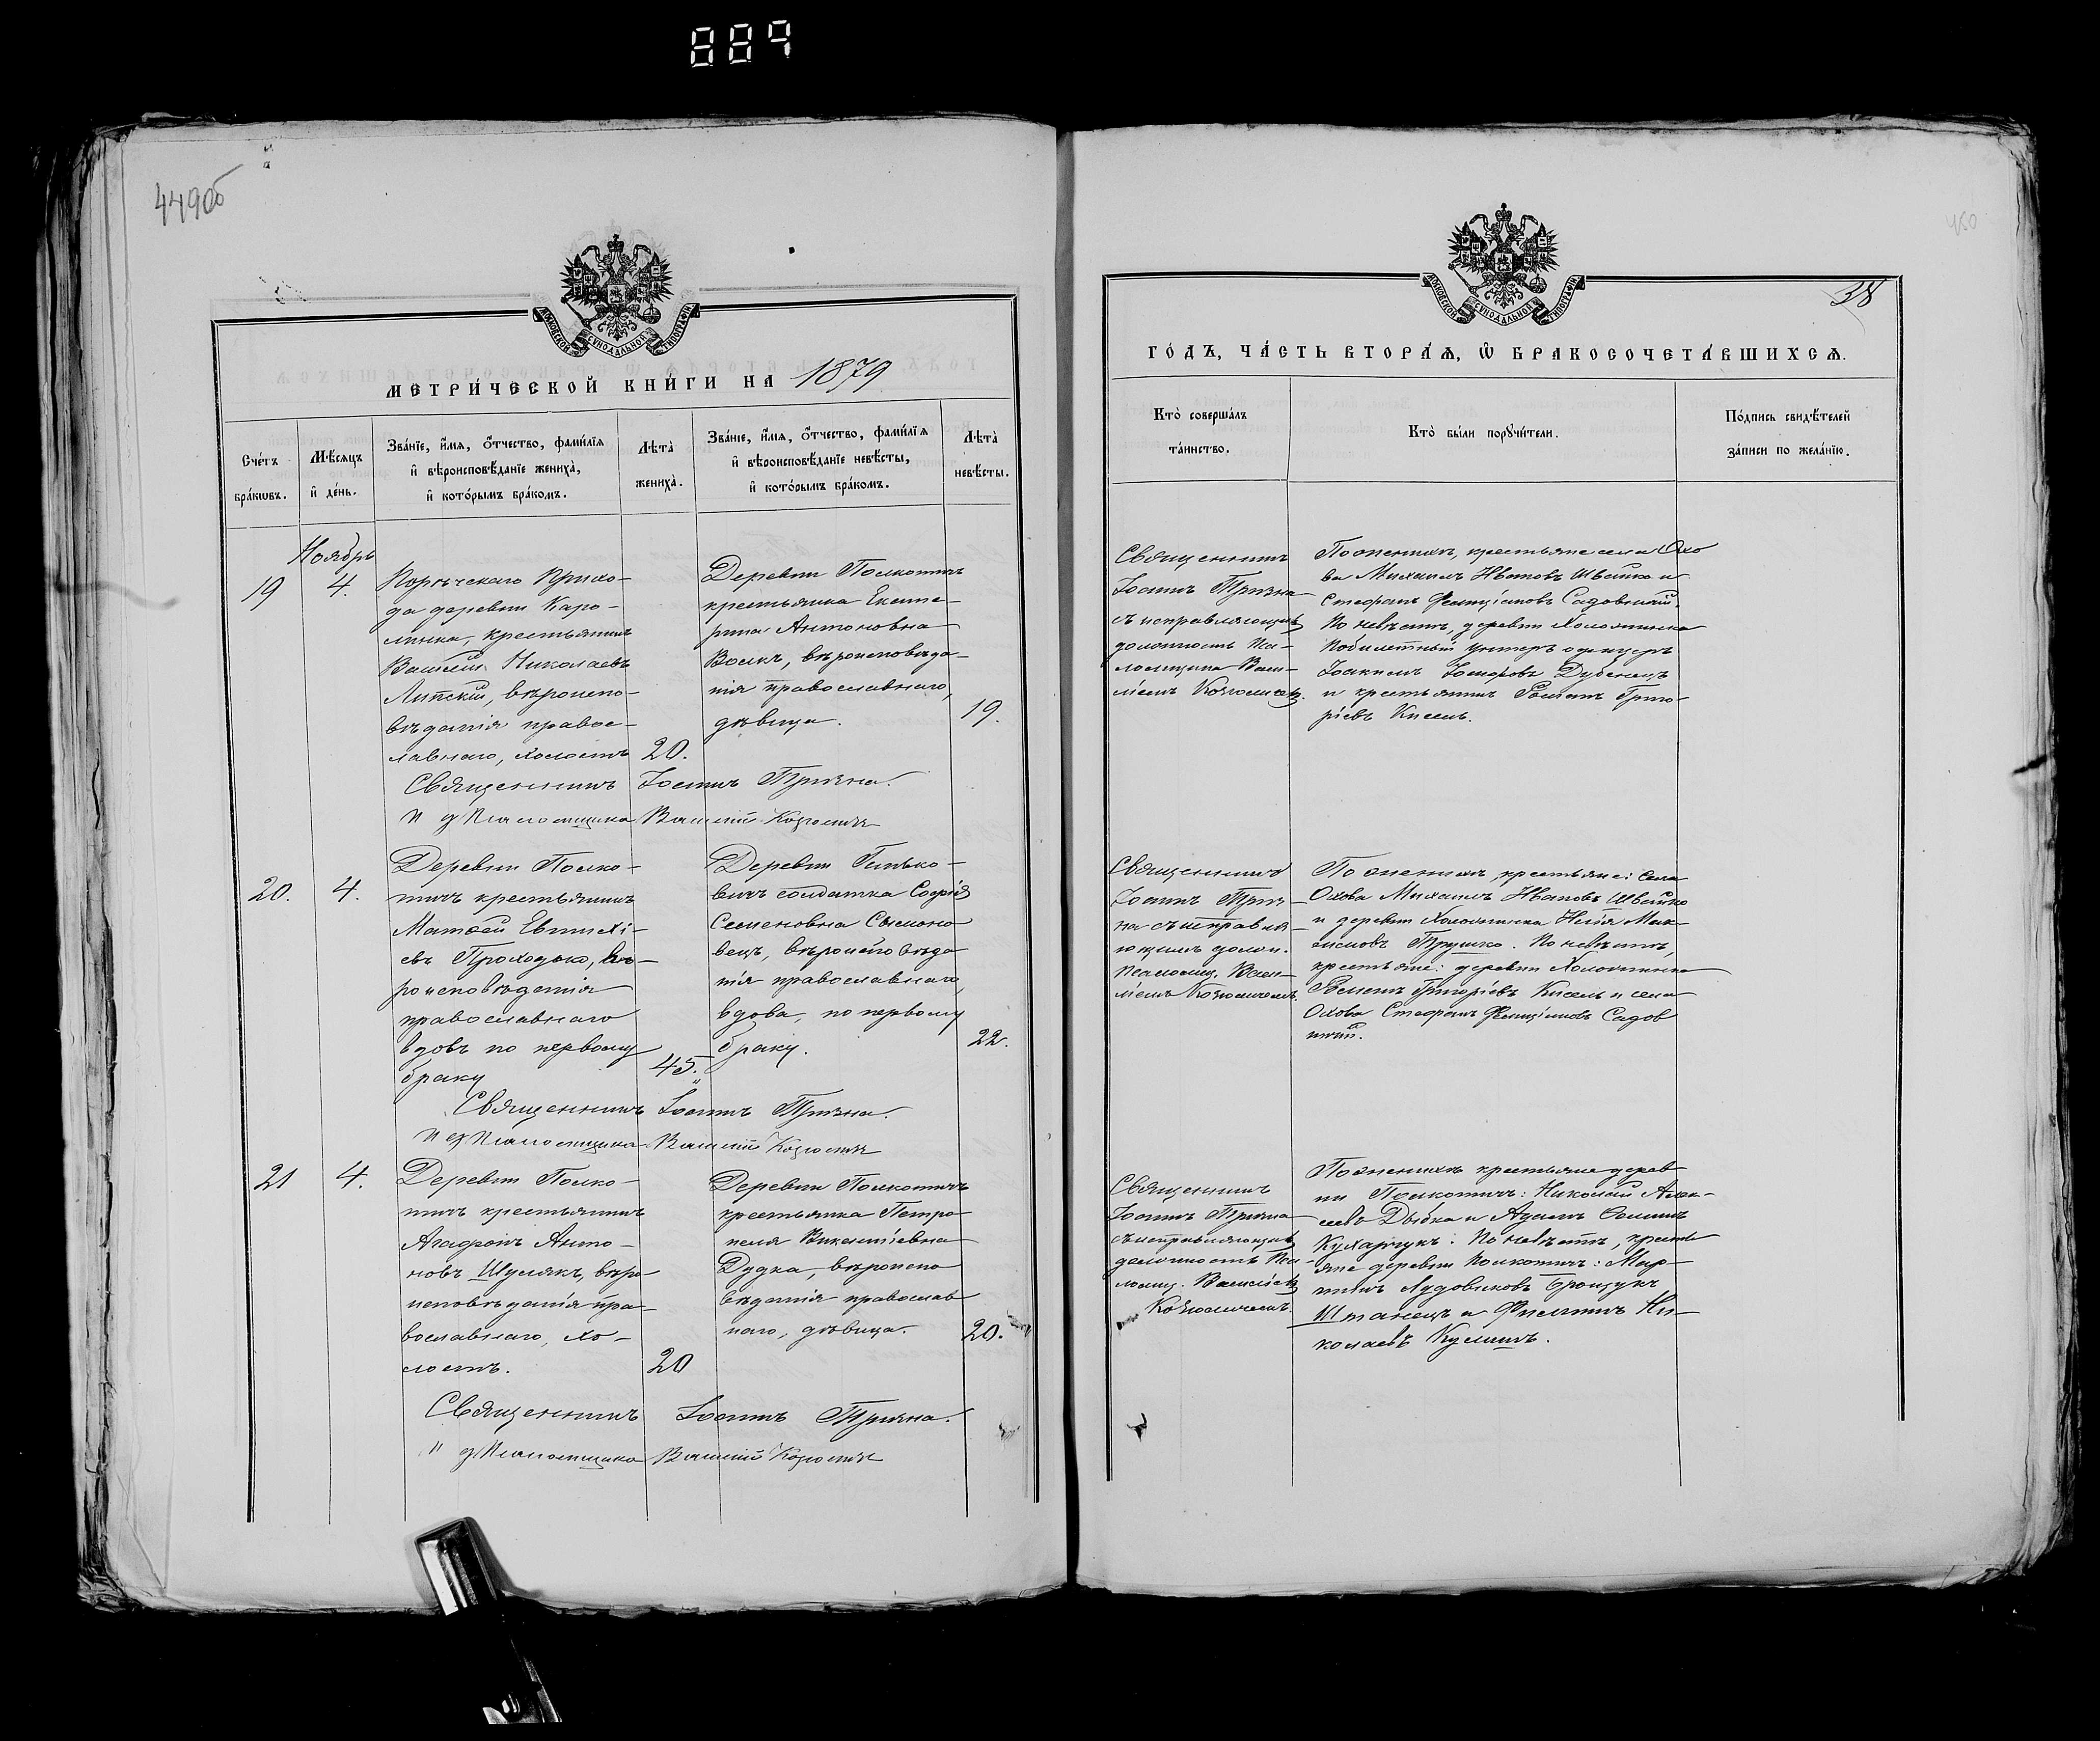 887
449об
450
38
МОСКОВСКОЙ СУНОДАЛЬНОЙ ТИПОГРАФІИ
МЕТРИ́ЧЕСКОЙ КНИ́ГИ НА 1879
Сче́тъ бра́кωвъ.
Мѣ́сяцъ и҆ де́нь.
Зва́нїе, и҆́мя, ѻ҆́тчество, фами́лїя
и҆ вѣроисповѣ́данїе жениха̀,
и҆ кото́рымъ бра́комъ.
Лѣта̀ жениха̀.
Зва́нїе, и҆́мя, ѻ҆́тчество, фами́лїя
и҆ вѣроисповѣ́данїе невѣ́сты,
и҆ кото́рымъ бра́комъ.
Лѣта̀ невѣ́сты.
Ноябрь
19
4.
Порѣчскаго Прихо-
да деревни Каро-
линка, крестьянинъ
Василій Николаевъ
Липскій, вѣроиспо-
вѣданія правос-
лавнаго, холостъ
20.
Деревни Полкотичъ
крестьянка Екате-
рина Антоновна
Волкъ, вѣроисповѣда-
нія православнаго,
дѣвица.
19.
Священникъ Іоаннъ Тризна.
И д Псаломщика Василій
20.
4.
Деревни Полко-
тичъ крестьянинъ
Матѳей Евтихі-
евъ Проходько, вѣ-
роисповѣданія
православнаго
вдовъ по первому
браку
45.
Деревни
вичъ солдатка Софія
Семеновна
вецъ, вѣроисповѣда
нія православнаго,
вдова, по первому
браку.
22.
Священникъ Іоаннъ Тризна.
И д Псаломщика Василій
21
4.
Деревни Полко-
тичъ крестьянинъ
Агафонъ Анто-
новъ Шулякъ, вѣро-
исповѣданія пра-
вославнаго, хо-
лостъ.
20
Деревни Полкотичъ
крестьянка Петро-
неля Викентіевна
Дудка, вѣроиспо
вѣданія православ
наго, дѣвица.
20.
Священникъ Іоаннъ Тризна.
И д Псаломщика Василій
МОСКОВСКОЙ СУНОДАЛЬНОЙ ТИПОГРАФІИ
ГО́ДЪ, ЧА́СТЬ ВТОРА́Я, Ѽ БРАКОСОЧЕТА́ВШИХСЯ.
Кто̀ соверша́лъ
та́инство.
Кто̀ бы́ли порꙋчи́тели.
По́дпись свидѣ́телей
за́писи по жела́нїю.
Священникъ
Іоаннъ Тризна
съ исправляющимъ
должность Пса-
ломщика Васи-
ліемъ
По женихѣ, крестьяне села Охо
ва Михаилъ Ивановъ Швайко и
Стефанъ Садовскій.
По невѣстѣ, деревни Холожинка
унтеръ офицеръ
Іоакимъ Дубенецъ
и крестьянинъ Григо-
ріевъ Кисель.
Священникъ
Іоаннъ Триз-
на съ исправля-
ющимъ должн.
Псаломщ. Васи-
ліемъ
По женихѣ, крестьяне: села
Охова Михаилъ Ивановъ Швайко
и деревни Холожинка Илія Мак-
симовъ Трушко. По невѣстѣ,
крестьяне: деревни Холожинка
Григоріевъ Кисель и села
Охова Стефанъ Садов
скій.
Священникъ
Іоаннъ Тризна
съ исправляющимъ
должность Пса-
ломщ. Василіемъ
По женихѣ крестьяне дерев
ни Полкотичъ: Николай Алек-
сѣевъ и Адамъ
Кухарчукъ. По невѣстѣ, кресть
яне деревни Полкотичъ: Мар-
тинъ Лудвиковъ
Штанецъ и Филиппъ Ни-
колаевъ Кулишъ.